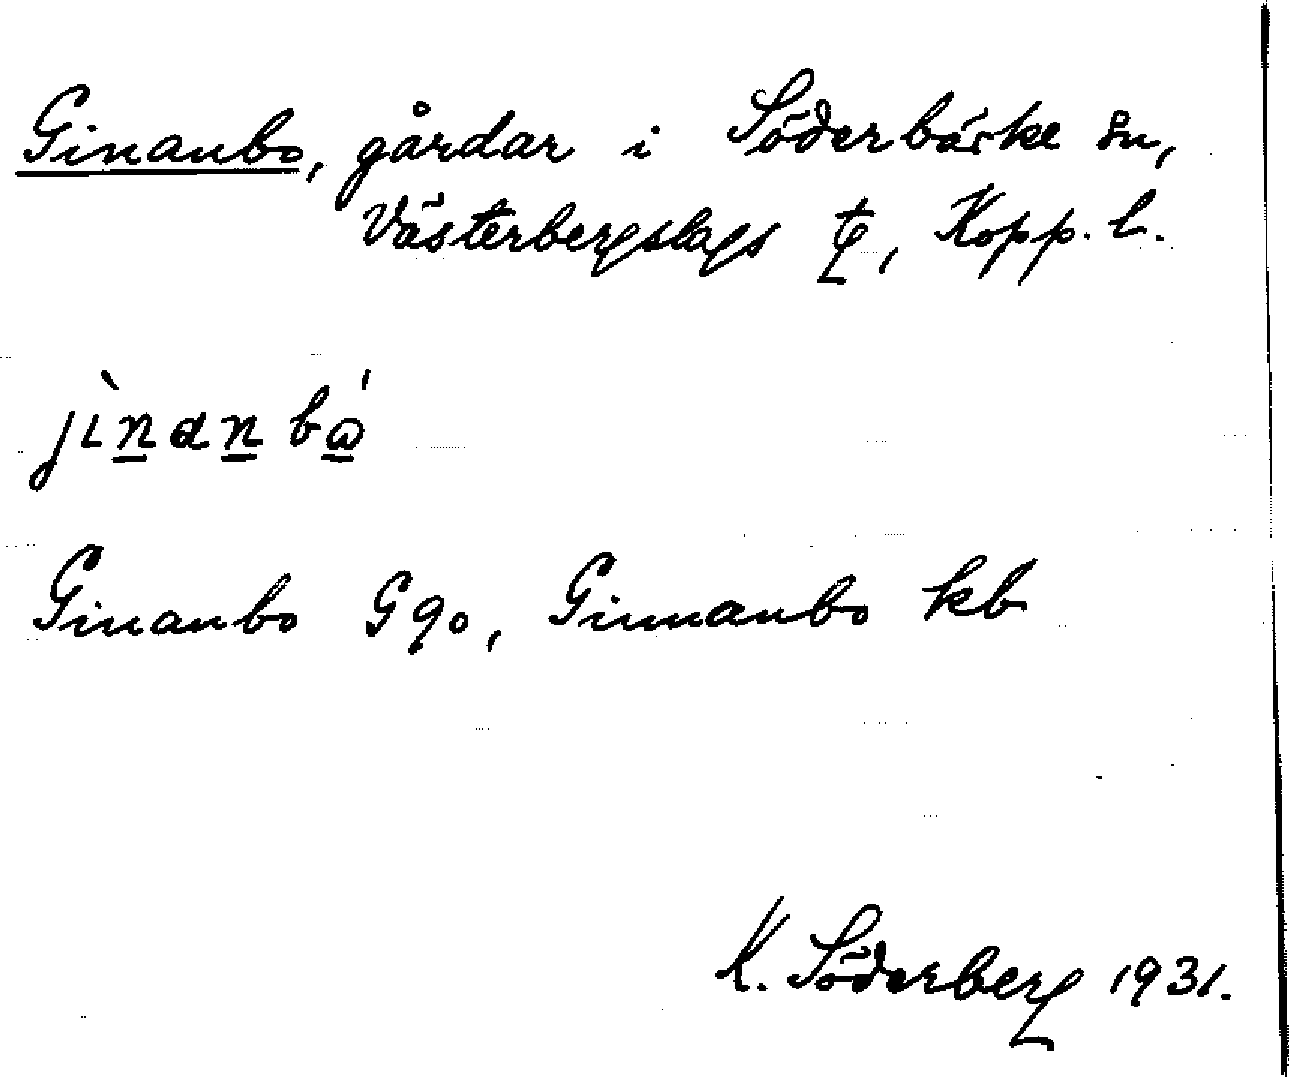 Ginanbo, gårdar i Söderbärke sn,
Västerbergslags tg, Kopp. l.
jìnanbǻ
Ginanbo G 90, Ginnanbo kb
K. Söderberg 1931.